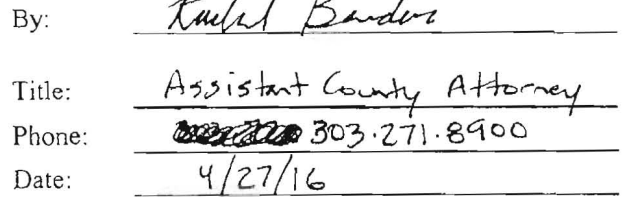 By: Rachel Bender
Title: Assistant County Attorney
Phone: 303.271.8900
Date: 4/27/16